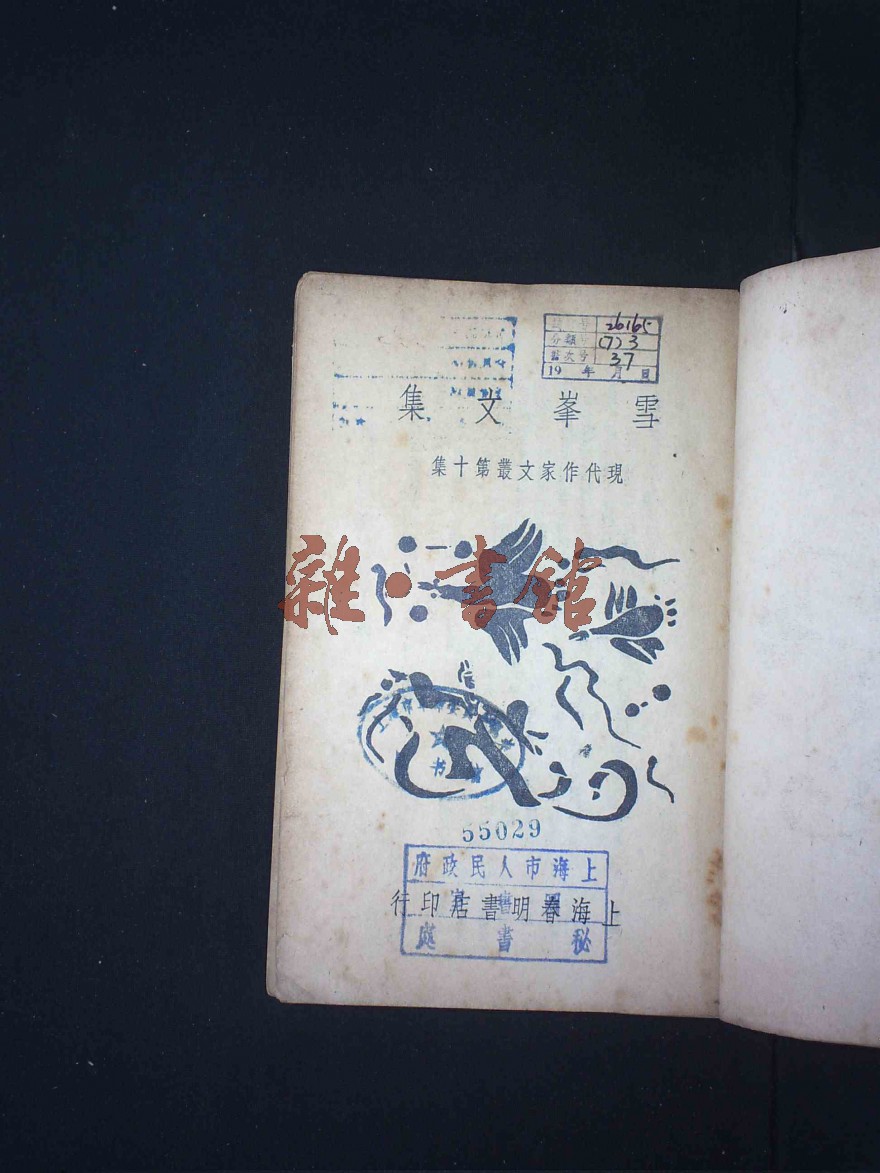 26165
分類 (7) 3
書次号 37
19 年 月 日
雪峯文集
現代作家文叢第十集
雜·書館
书
55029
上海市人民政府
上海春明書店印行
秘書處